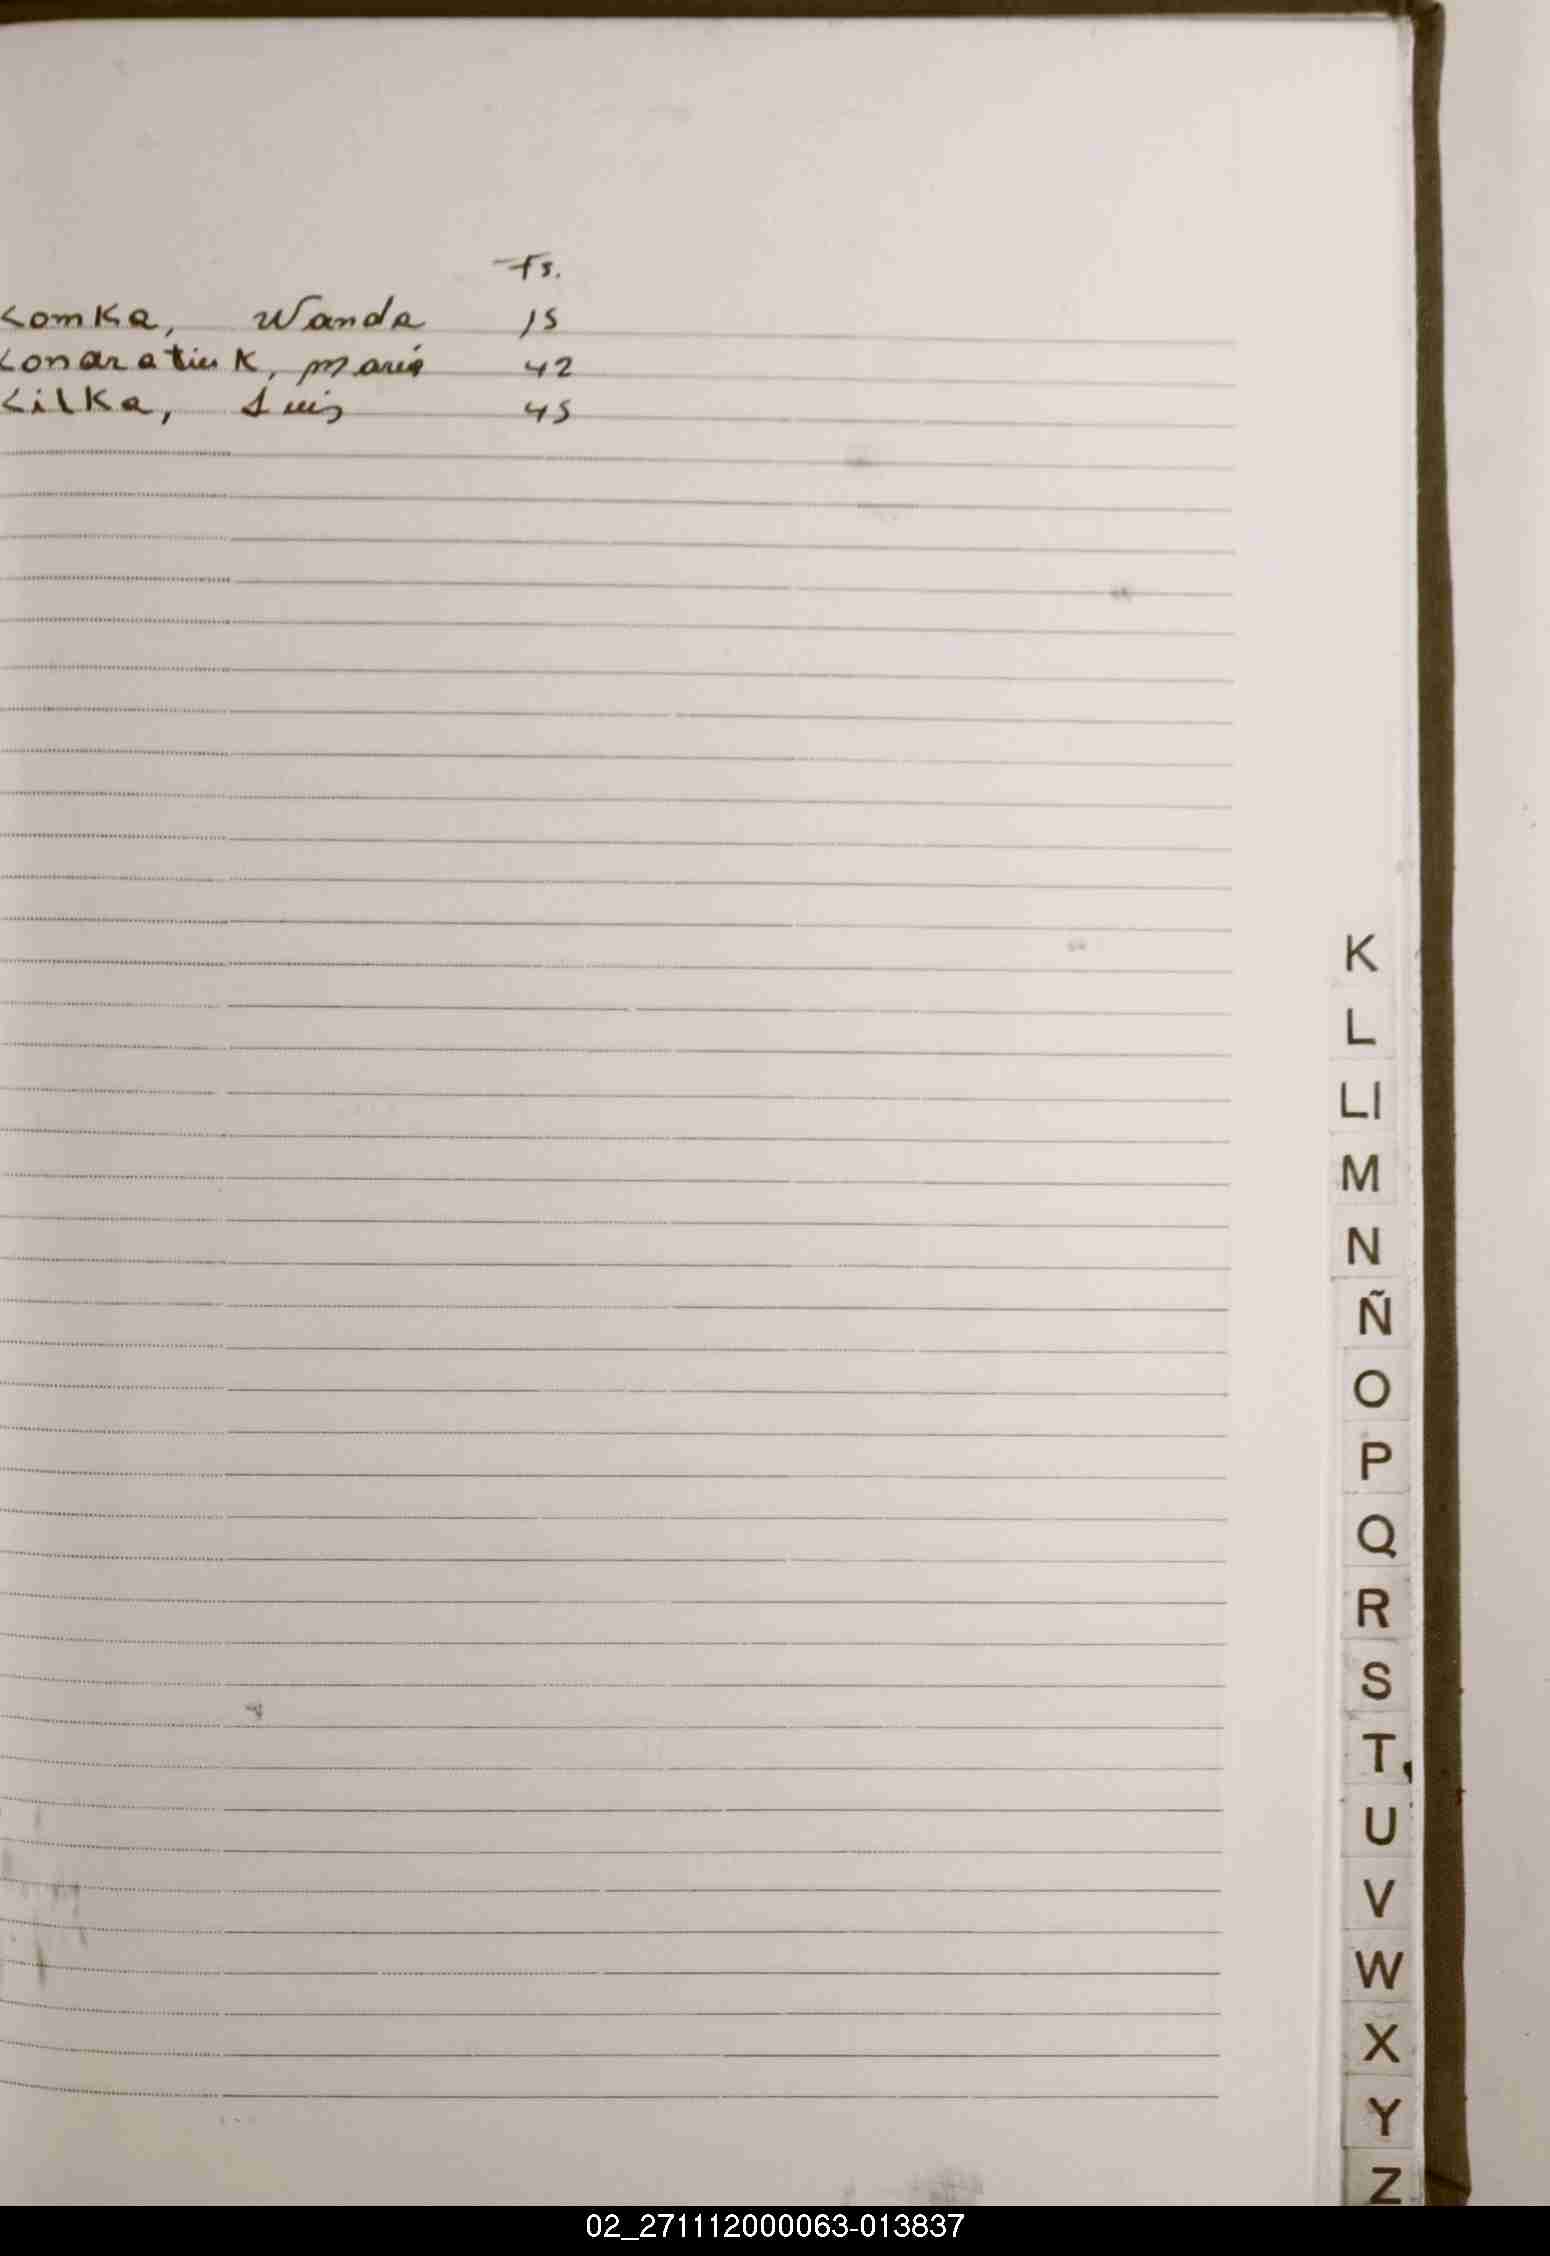 Fs.
Komka, Wanda 15
Kondratiuk, María 42
Kilka, Luis 45
K
L
Ll
M
N
Ñ
O
P
Q
R
S
T
U
V
W
X
Y
Z
02_271112000063-013837